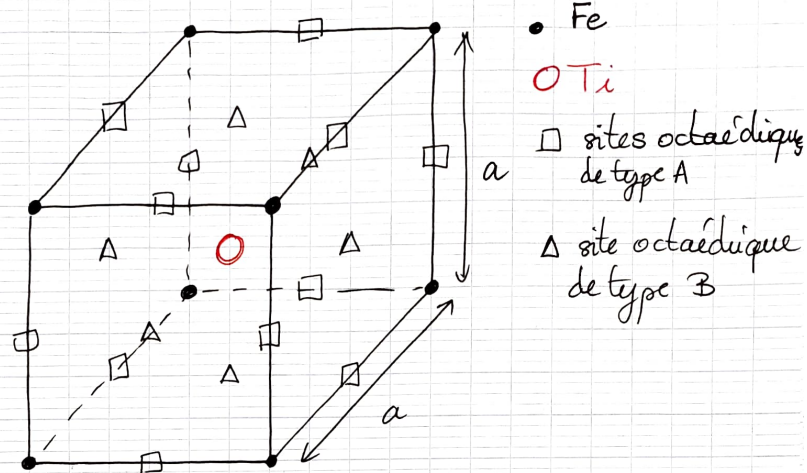 Fe
Ti
sites octaédriques
de type A
a
site octaédrique
de type B
a